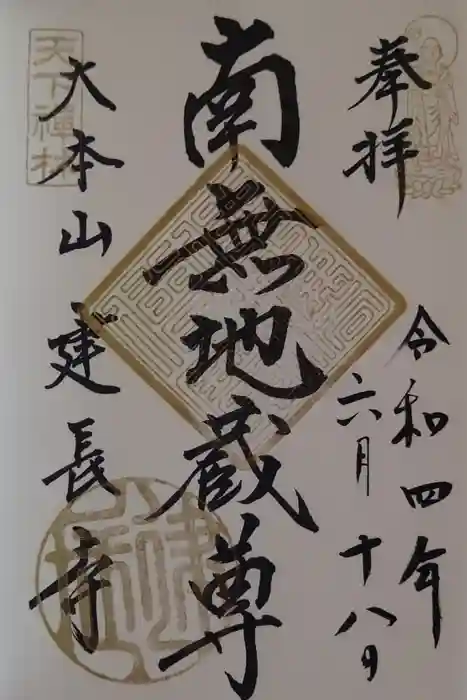 奉拝
令和四年
六月十八日
南無地蔵尊
大本山建長寺
天下禅林